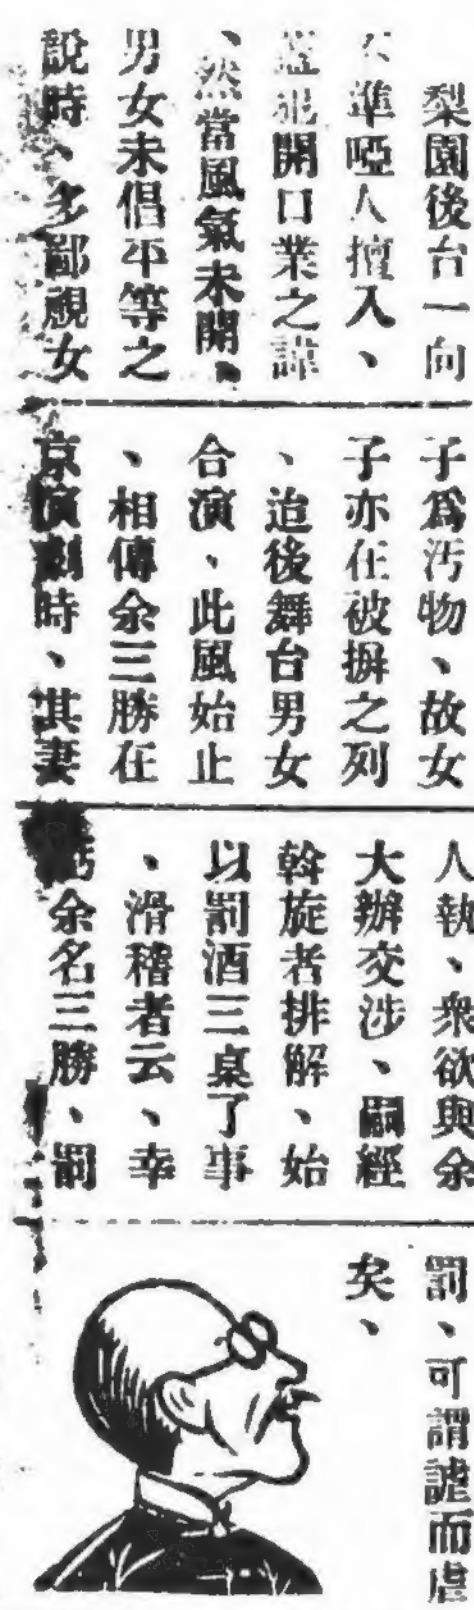 梨園後台一向
不準啞人擅入、
恐犯開口業之諱
、然當風氣未開、
男女未倡平等之
說時、多鄙視女
子爲汚物、故女
子亦在被摒之列
、迨後舞台男女
合演、此風始止
、相傳余三勝在
京演劇時、其妻
人執、衆欲與余
大辦交涉、嗣經
斡旋者排解、始
以罰酒三桌了事
、滑稽者云、幸
余名三勝、罰
罰、可謂謔而虐
矣、